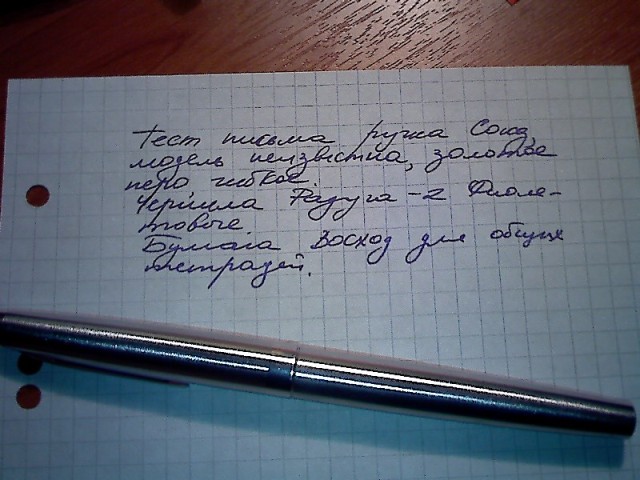 Тест письма ручка Союз,
модель неизвестна, золотое
перо гибкое
Чернила Радуга-2 Фиоле-
товые.
Бумага Восход для общих
тетрадей.